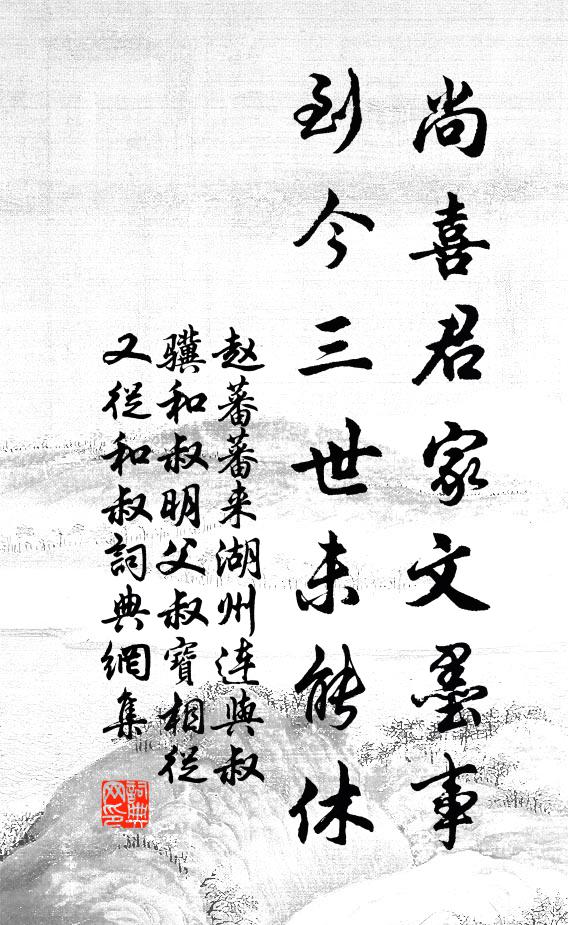 尚喜君家文墨事
到今三世未能休
赵蕃蕃来湖州连与叔
骥和叔明父叔寶相從
又從和叔詞典網集
詞典网印